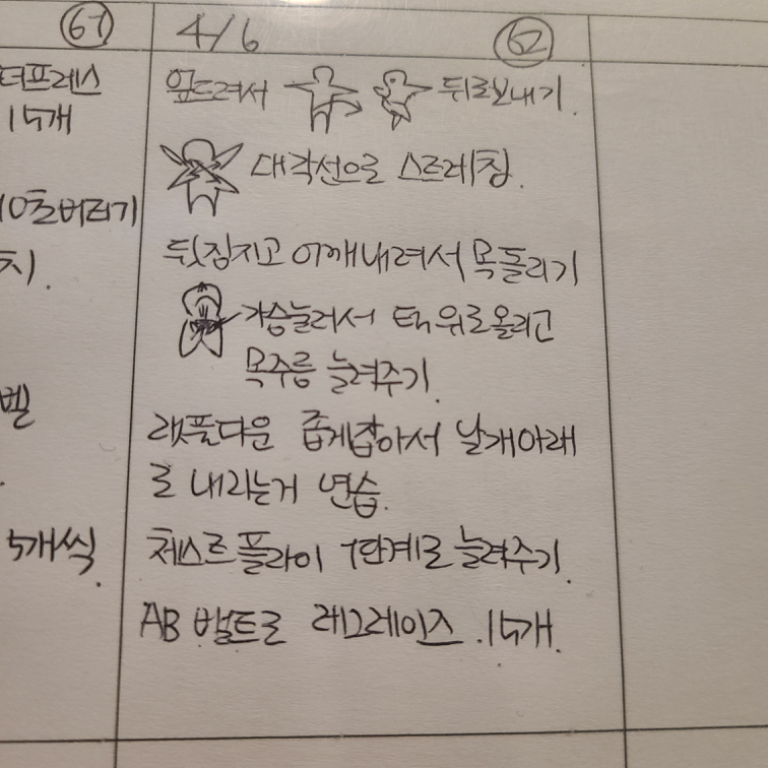 61
더프레스
15개
10초버티기
치.
벨
5개씩.
4/6 62
엎드려서 뒤로보내기.
대각선으로 스트레칭.
뒷짐지고 어깨내려서 목돌리기
가슴눌러서 턱위로올리고
목주름 늘려주기.
랫풀다운 좁게잡아서 날개아래
로 내리는거 연습.
체스트플라이 1단계로 늘려주기.
AB 벨트로 레그레이즈 15개.